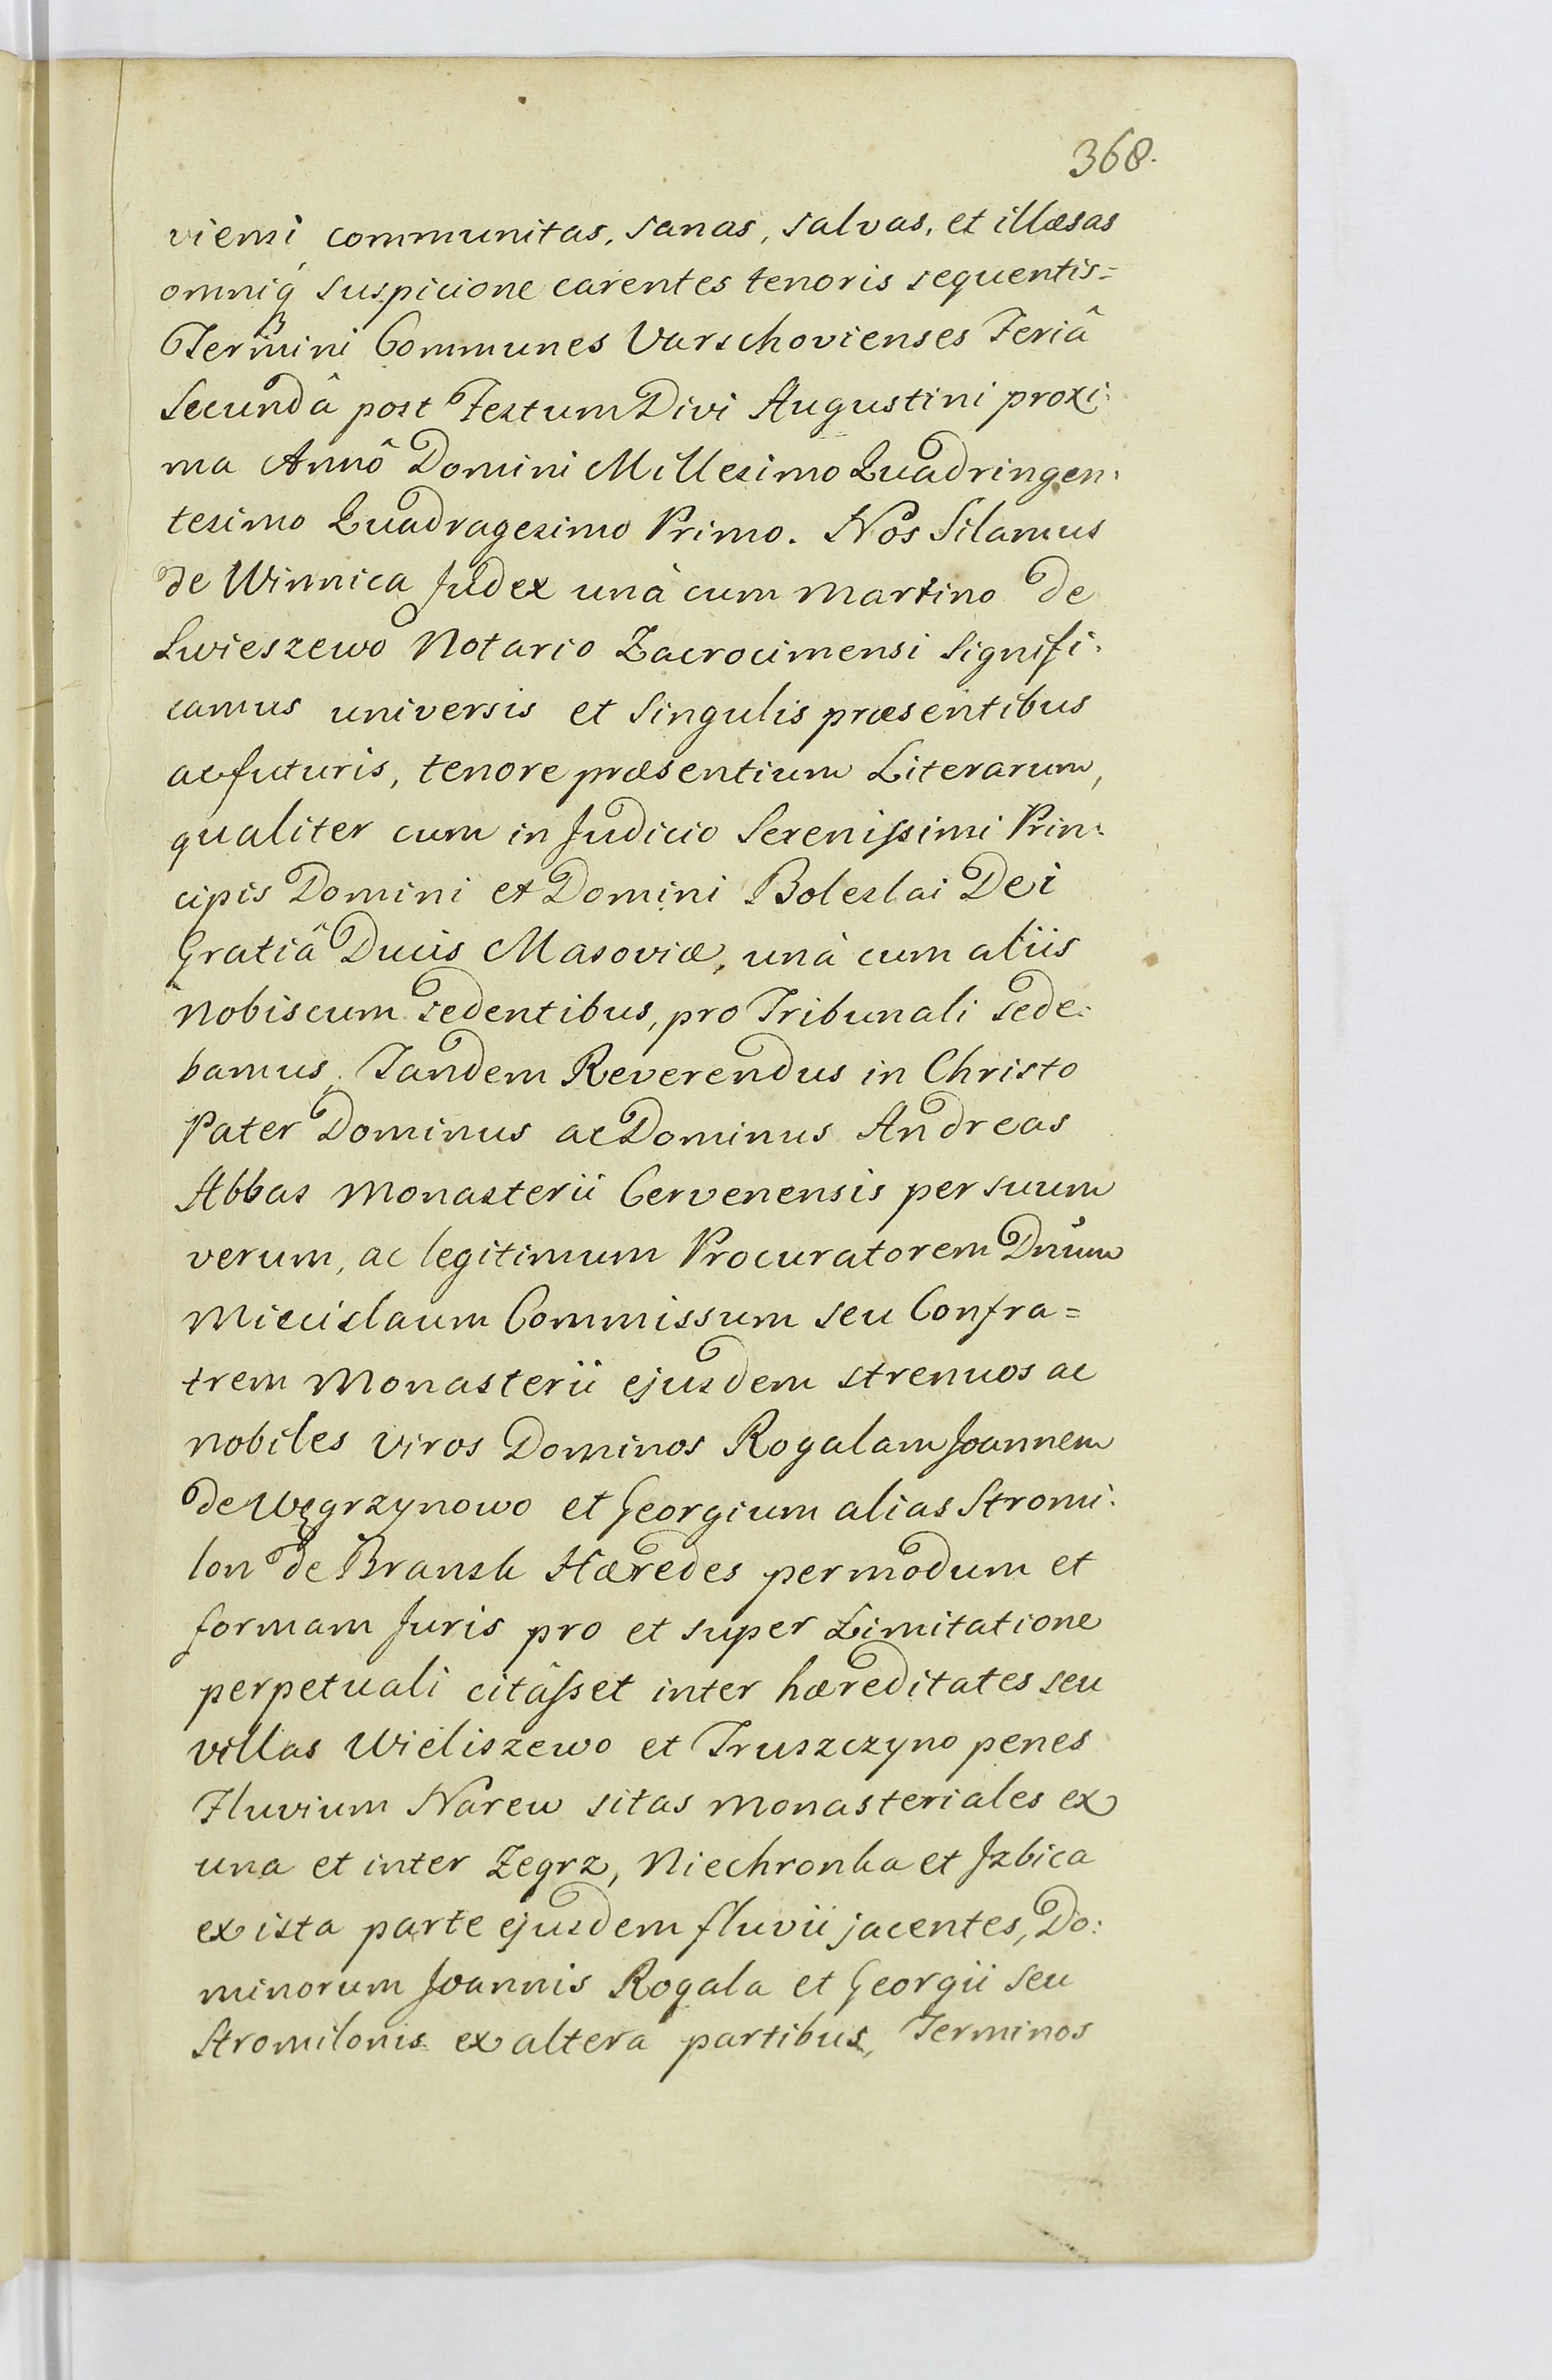 368.
viensi communitas, sanas, salvas, et illæsas
omniq́ suspicione carentes tenoris sequentis=
Termini Communes Varschovienses Feriâ
Secundâ post Festum Divi Augustini proxi:
ma Annô Domini Millesimo Quadringen:
tesimo Quadragesimo Primo. Nos Silamus
de Winnica Judex unà cum Martino de
Swieszewo Notario Zacrocimensi Signifi:
camus universis et Singulis præsentibus
ac futuris, tenore præsentium Literarum,
qualiter cum in Judicio Serenissimi Prin:
cipis Domini et Domini Boleslai Dei
Gratiâ Ducis Masoviæ, unà cum aliis
Nobiscum sedentibus, pro Tribunali sede:
bamus, Tandem Reverendus in Christo
Pater Dominus ac Dominus Andreas
Abbas Monasterii Cervenensis per suum
verum, ac legitimum Procuratorem Dnum
Miecislaum Commissum seu Confra=
trem Monasterii ejusdem strenuos ac
nobiles viros Dominos Rogalam Joannem
de Węgrzynowo et Georgium alias Stromi:
lon de Bransk Hæredes per modum et
formam Juris pro et super Limitatione
perpetuali citâsset inter hæreditates seu
villas Wieliszewo et Truszczyno penes
Fluvium Narew sitas Monasteriales ex
una et inter Zegrz, Niechronka et Jzbica
ex ista parte ejusdem fluvii jacentes, Do:
minorum Joannis Rogala et Georgii seu
Stromilonis ex altera partibus, Terminos